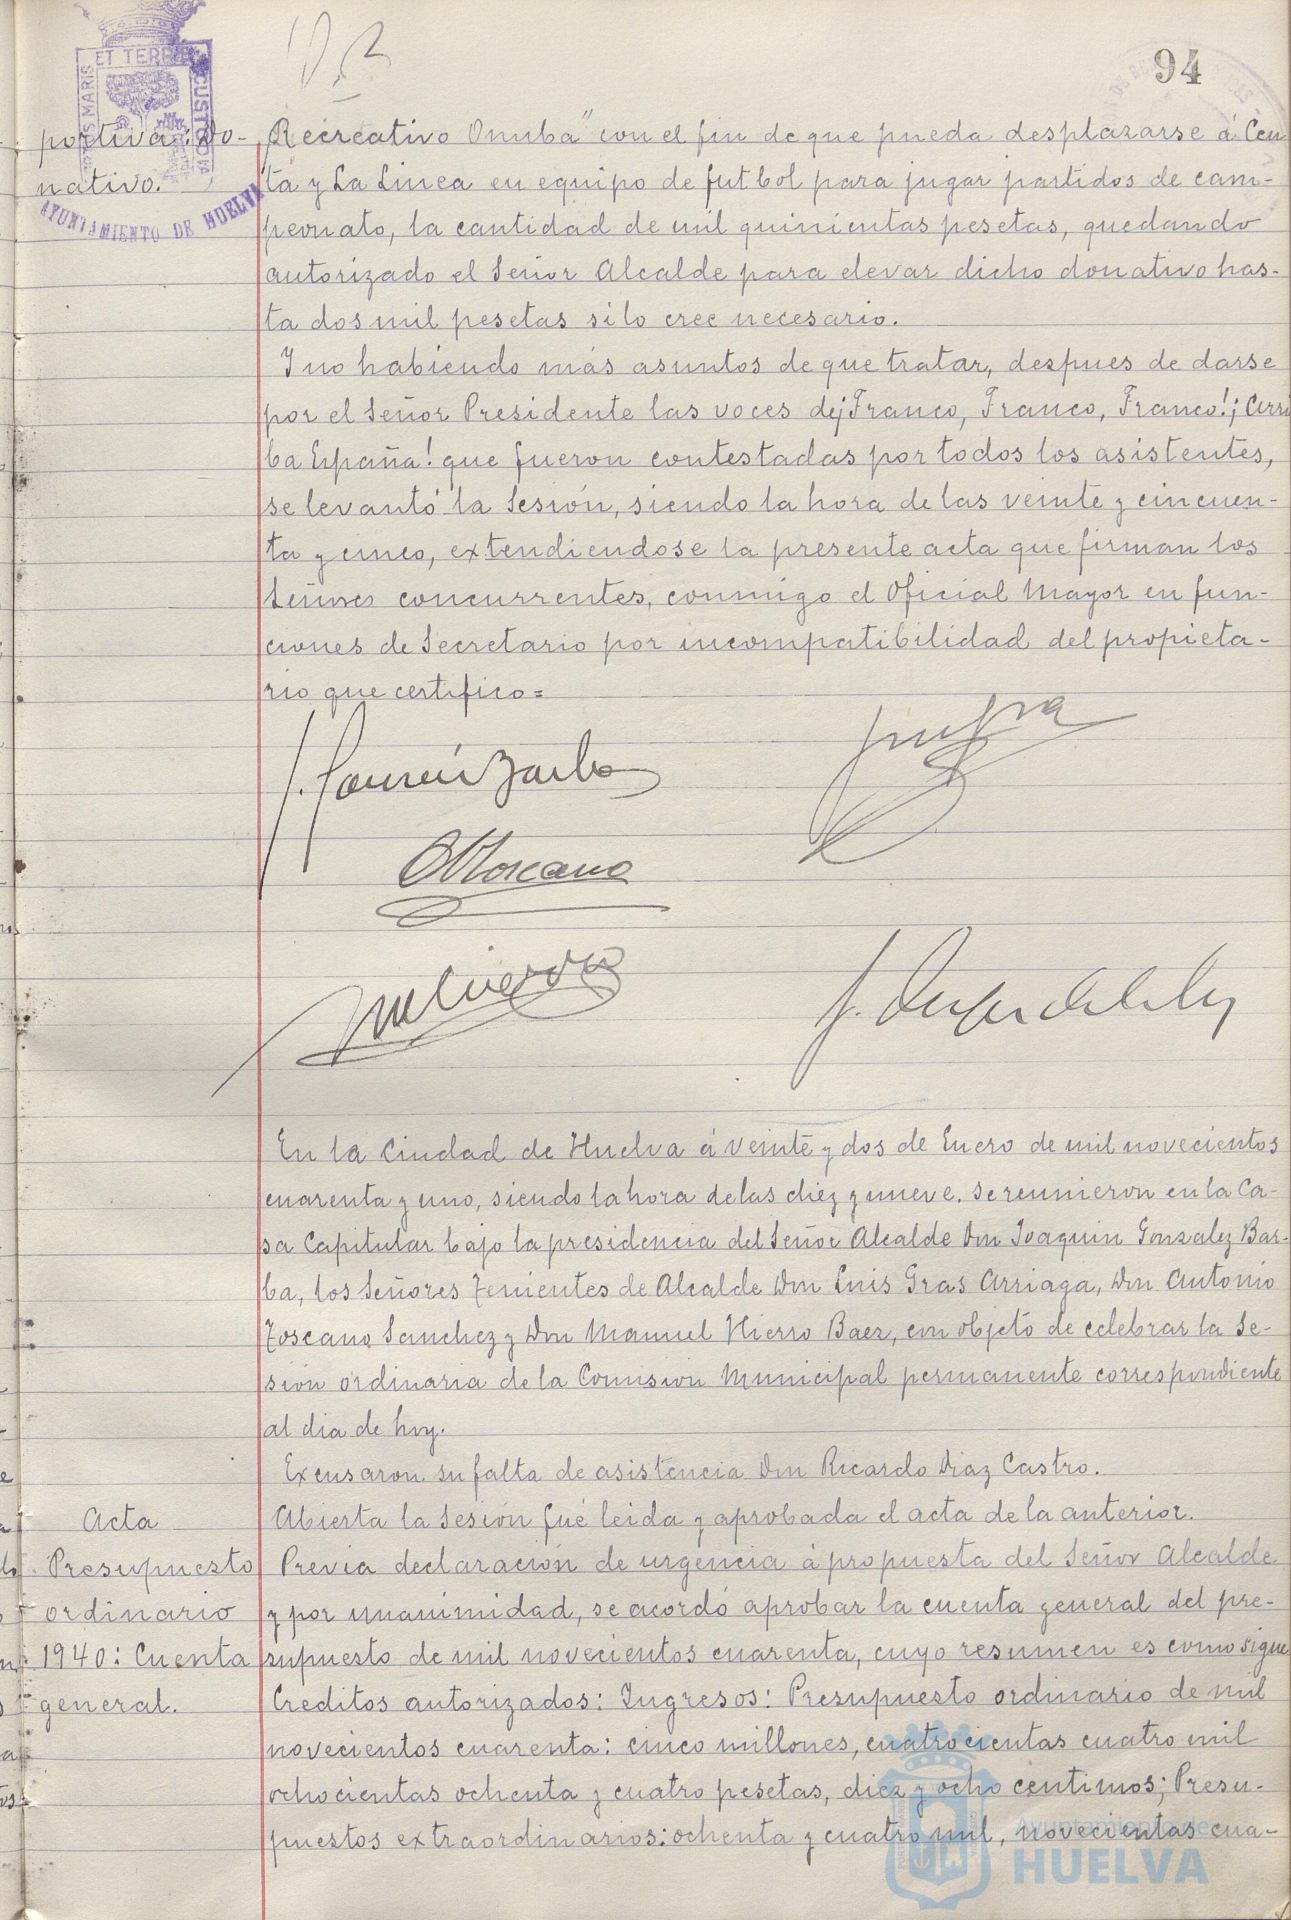 94
PORTUS MARIS ET TERRE CUSTODIA
AYUNTAMIENTO DE HUELVA
portiva: Do-
nativo.
Recreativo Onuba" con el fin de que pueda desplazarse á Ceu
ta y La Linea en equipo de futbol para jugar partidos de cam-
peonato, la cantidad de mil quinientas pesetas, quedando
autorizado el Señor Alcalde para elevar dicho donativo has-
ta dos mil pesetas si lo cree necesario.
Y no habiendo más asuntos de que tratar, despues de darse
por el Señor Presidente las voces de ¡Franco, Franco, Franco! ¡Arri
ba España! que fueron contestadas por todos los asistentes,
se levantó la Sesión, siendo la hora de las veinte y cincuen-
ta y cinco, extendiendose la presente acta que firman los
Señores concurrentes, conmigo el Oficial Mayor en fun-
ciones de Secretario por incompatibilidad del propieta-
rio que certifico=
En la Ciudad de Huelva á veinte y dos de Enero de mil novecientos
cuarenta y uno, siendo la hora de las diez y nueve, se reunieron en la Ca-
sa Capitular bajo la presidencia del Señor Alcalde Don Joaquin Gonzalez Bar-
ba, los Señores Tenientes de Alcalde Don Luis Gras Arriaga, Don Antonio
Toscano Sanchez y Don Manuel Hierro Baez, con objeto de celebrar la Se-
sión ordinaria de la Comisión Municipal permanente correspondiente
al dia de hoy.
Excusaron su falta de asistencia Don Ricardo Diaz Castro.
Acta
Abierta la Sesión fué leida y aprobada el acta de la anterior.
Presupuesto
ordinario
1940: Cuenta
general.
Previa declaración de urgencia á propuesta del Señor Alcalde
y por unanimidad, se acordó aprobar la cuenta general del pre-
supuesto de mil novecientos cuarenta, cuyo resumen es como sigue
Creditos autorizados: Ingresos: Presupuesto ordinario de mil
novecientos cuarenta: cinco millones, cuatrocientas cuatro mil
ochocientas ochenta y cuatro pesetas, diez y ocho centimos; Presu-
puestos extraordinarios: ochenta y cuatro mil, novecientas cua-
Ayuntamiento de
HUELVA